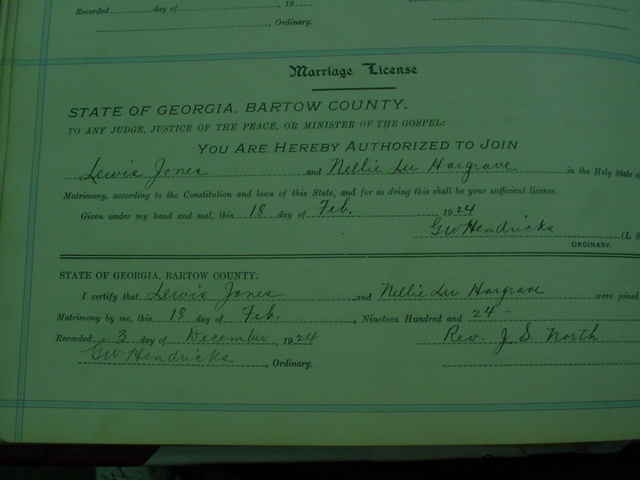 Recorded day of , 19
, Ordinary.
Marriage License
STATE OF GEORGIA, BARTOW COUNTY.
TO ANY JUDGE, JUSTICE OF THE PEACE, OR MINISTER OF THE GOSPEL:
YOU ARE HEREBY AUTHORIZED TO JOIN
Lewis Jones and Nellie Lu Hargrave in the Holy State of
Matrimony, according to the Constitution and laws of this State, and for so doing this shall be your sufficient license.
Given under my hand and seal, this 18 day of Feb. , 1924
GW Hendricks (L. S
ORDINARY.
STATE OF GEORGIA, BARTOW COUNTY.
I certify that Lewis Jones and Nellie Lu Hargrave were joined
Matrimony by me, this 18 day of Feb. , Nineteen Hundred and 24 -
Recorded 3 day of December, 1924 Rev. J. S. North
GW Hendricks , Ordinary.